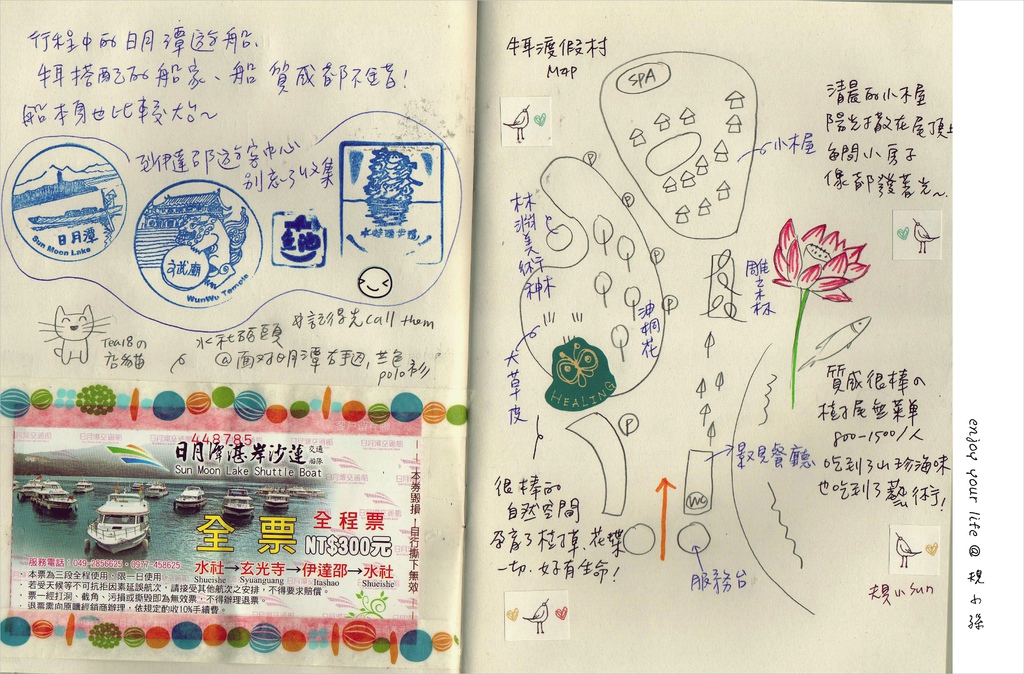 行程中的日月潭遊船、
蚌搭配的船家、船 質感都不錯!
船本身也比較大台~
到伊達邵遊客中心
別忘了收集
日月潭
Sun Moon Lake
文武廟
WunWu Temple
魚池
水社碼頭
@面對日月潭右手邊,藍色
polo衫
※記得先call them
Tea18の
店貓
448785
日月潭湛岸沙蓮 交通船隊
Sun Moon Lake Shuttle Boat
全票
全程票
NT$300元
服務電話:049-2856625‧0977-458625
水社→玄光寺→伊達邵→水社
Shueishe Syuanguang Itashao Shueishe
‧本票為三段全程使用 限一日使用
‧若受天候等不可抗拒因素延誤航次,請接受其他航次之安排,不得要求賠償。
‧票一經打洞、截角、污損或撕毀即為無效票,不得辦理退票。
‧退票需向原購經銷商辦理,依規定酌收10%手續費。
本券毀損!自行撕下無效
日月潭交通船
MAP
SPA
小木屋
P
P
P
P
P
林淵美術神木
油桐花
大草皮
HEALING
雕之森林
景見餐廳
WC
服務台
很棒的
自然空間
孕育了植栽、花、蝶
一切、好有生命!
清晨的小木屋
陽光撒在屋頂上
每間小房子
像都發著光~
質感很棒の
樹屋無菜單
800-1500/人
吃到了山珍海味
也吃到了藝術!
規小sun
enjoy your life @ 規小孫